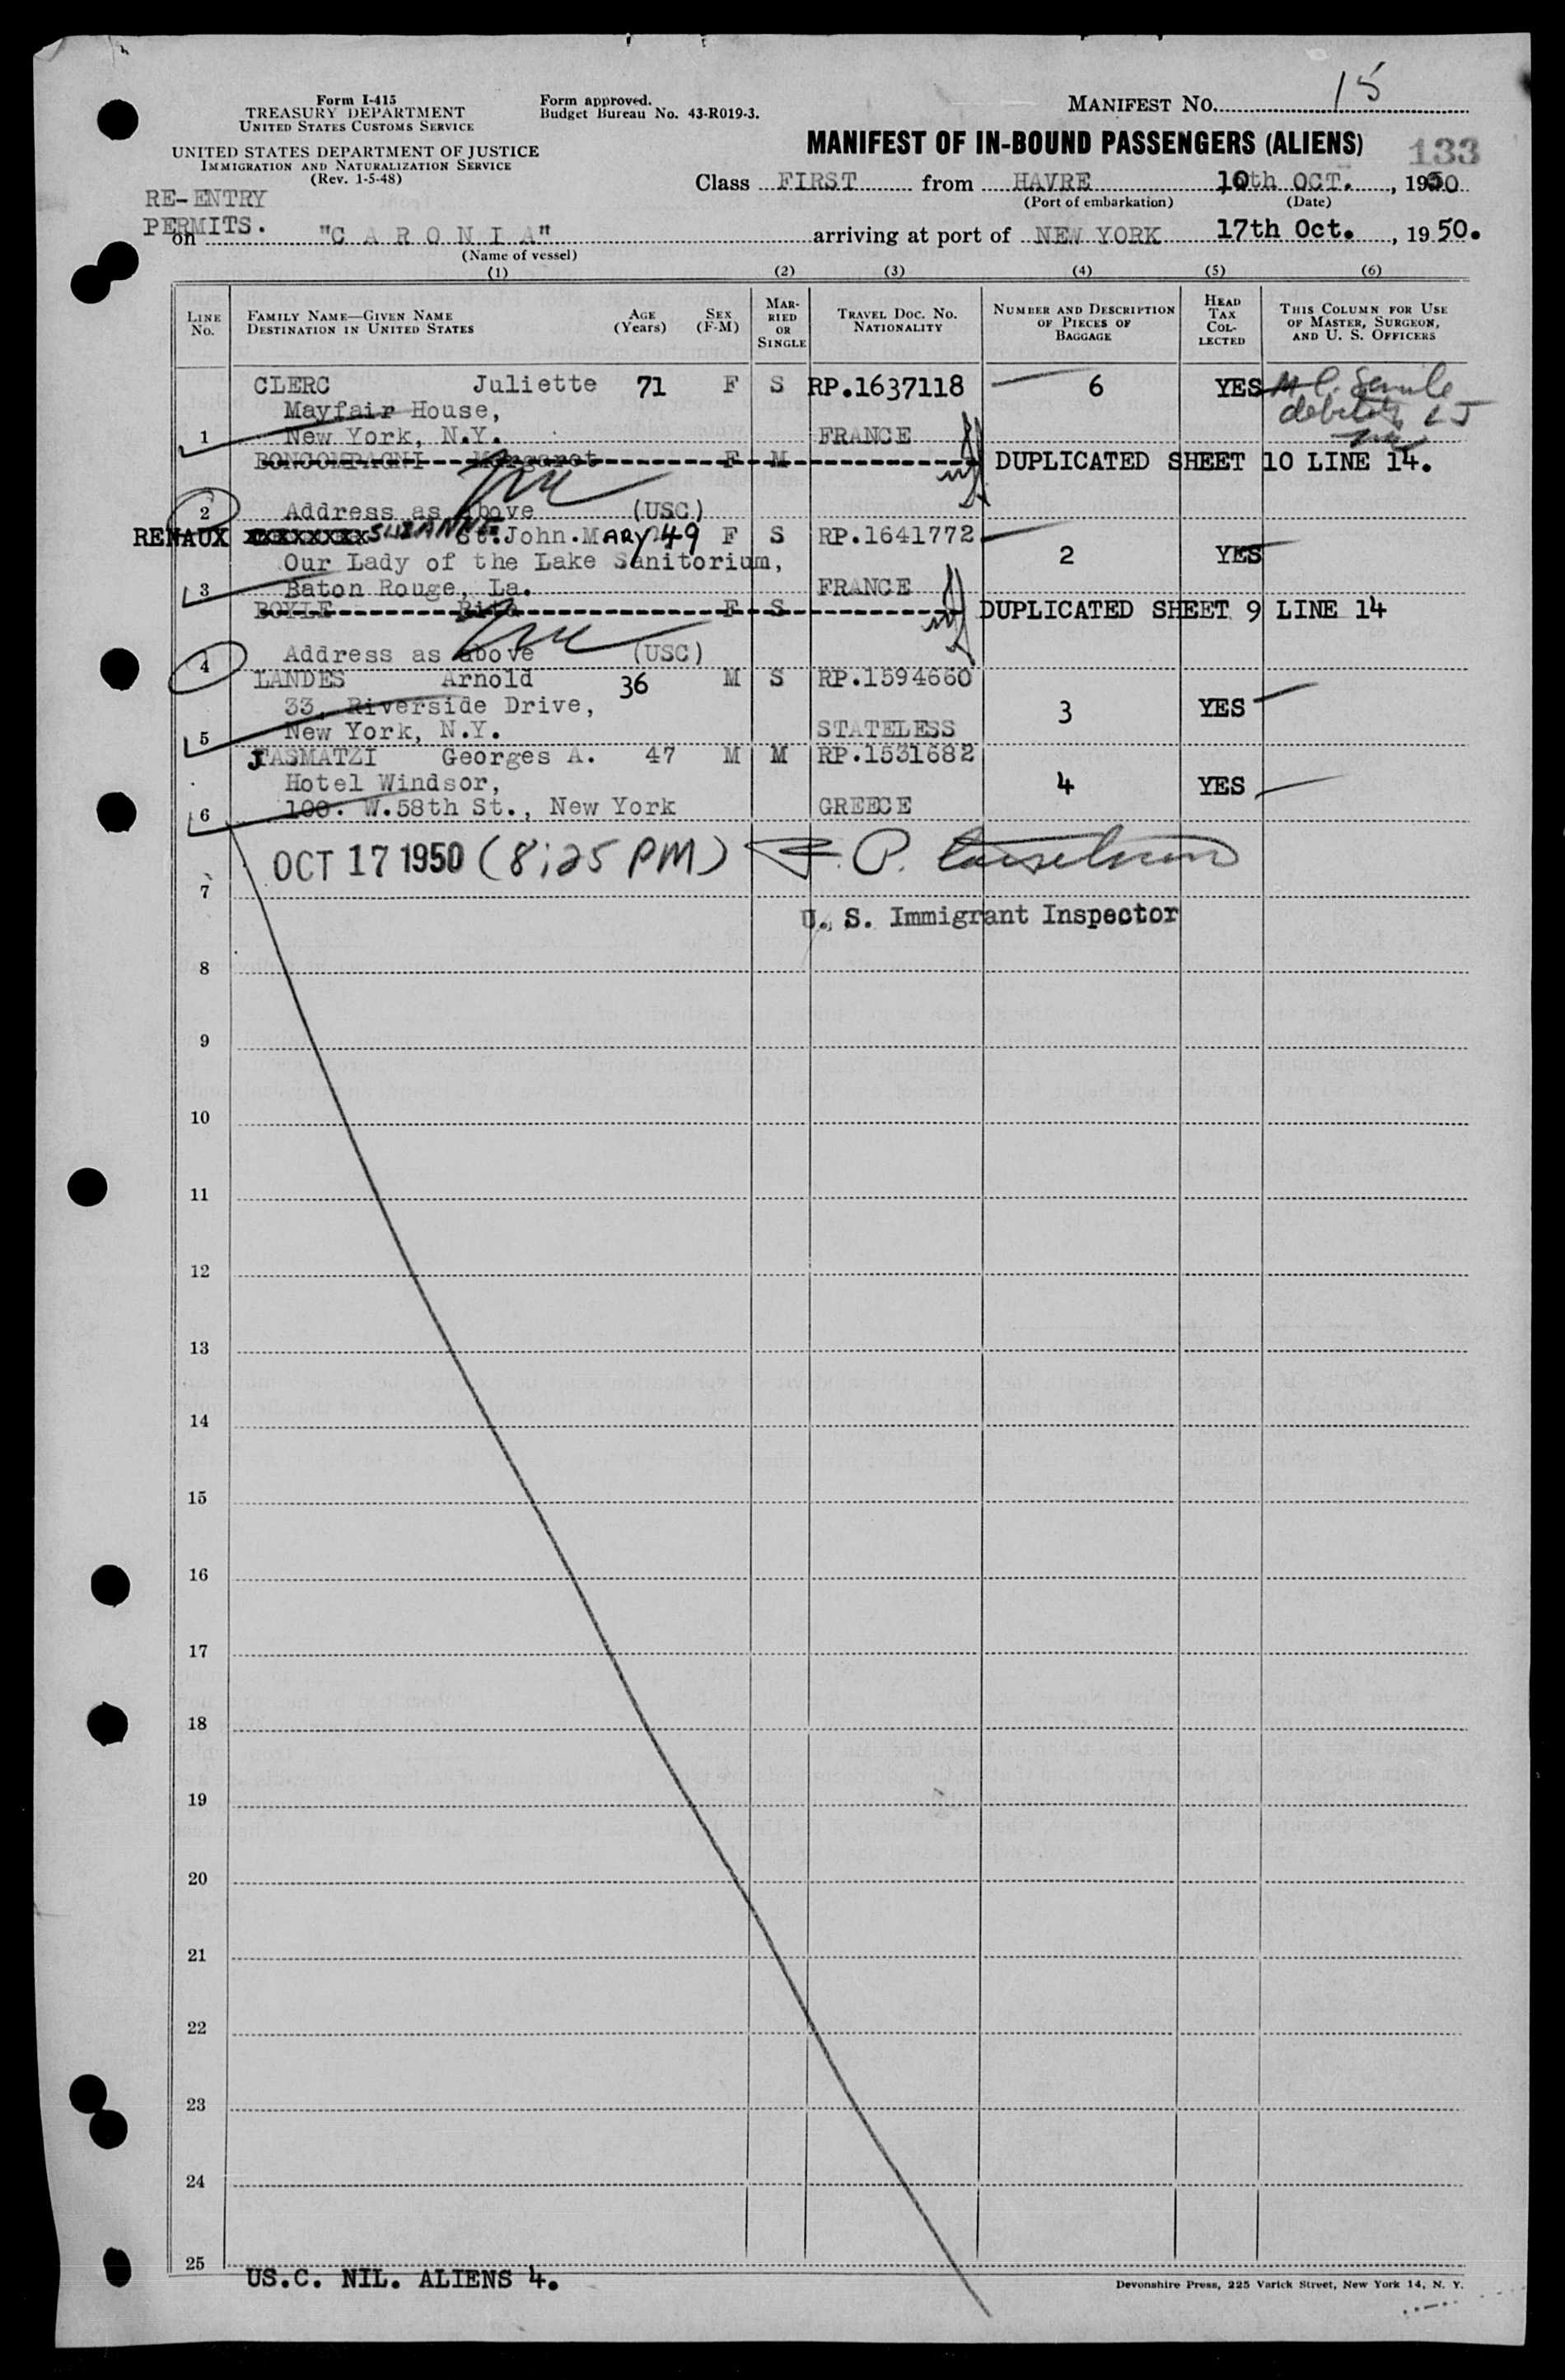 Form I-415
TREASURY DEPARTMENT
UNITED STATES CUSTOMS SERVICE
UNITED STATES DEPARTMENT OF JUSTICE
IMMIGRATION AND NATURALIZATION SERVICE
(Rev. 1-5-48)
Form approved.
Budget Bureau No. 43-R019-3.
MANIFEST NO. 15
MANIFEST OF IN-BOUND PASSENGERS (ALIENS) 133
Class FIRST from HAVRE 10th OCT., 1950
(Port of embarkation) (Date)
RE-ENTRY
PERMITS.
on "C A R O N I A" arriving at port of NEW YORK 17th Oct., 1950.
(Name of vessel)
(1) (2) (3) (4) (5) (6)
LINE No. FAMILY NAME—GIVEN NAME DESTINATION IN UNITED STATES AGE (Years) SEX (F-M) MARRIED OR SINGLE TRAVEL DOC. NO. NATIONALITY NUMBER AND DESCRIPTION OF PIECES OF BAGGAGE HEAD TAX COLLECTED THIS COLUMN FOR USE OF MASTER, SURGEON, AND U. S. OFFICERS
CLERC Juliette 71 F S RP.1637118 6 YES
Mayfair House,
1 New York, N.Y. FRANCE
BONCOMPAGNI Margaret F M DUPLICATED SHEET 10 LINE 14.
2 Address as above (USC)
RENAUX SUZANNE St.John.MARY 49 F S RP.1641772 2 YES
Our Lady of the Lake Sanitorium,
3 Baton Rouge, La. FRANCE
BOYLE Rita F S DUPLICATED SHEET 9 LINE 14
4 Address as above (USC)
LANDES Arnold 36 M S RP.1594660 3 YES
33, Riverside Drive,
5 New York, N.Y. STATELESS
JASMATZI Georges A. 47 M M RP.1531682 4 YES
Hotel Windsor,
6 100. W.58th St., New York GREECE
OCT 17 1950 (8:25 PM)
7
U. S. Immigrant Inspector
8
9
10
11
12
13
14
15
16
17
18
19
20
21
22
23
24
25
US.C. NIL. ALIENS 4.
Devonshire Press, 225 Varick Street, New York 14, N. Y.